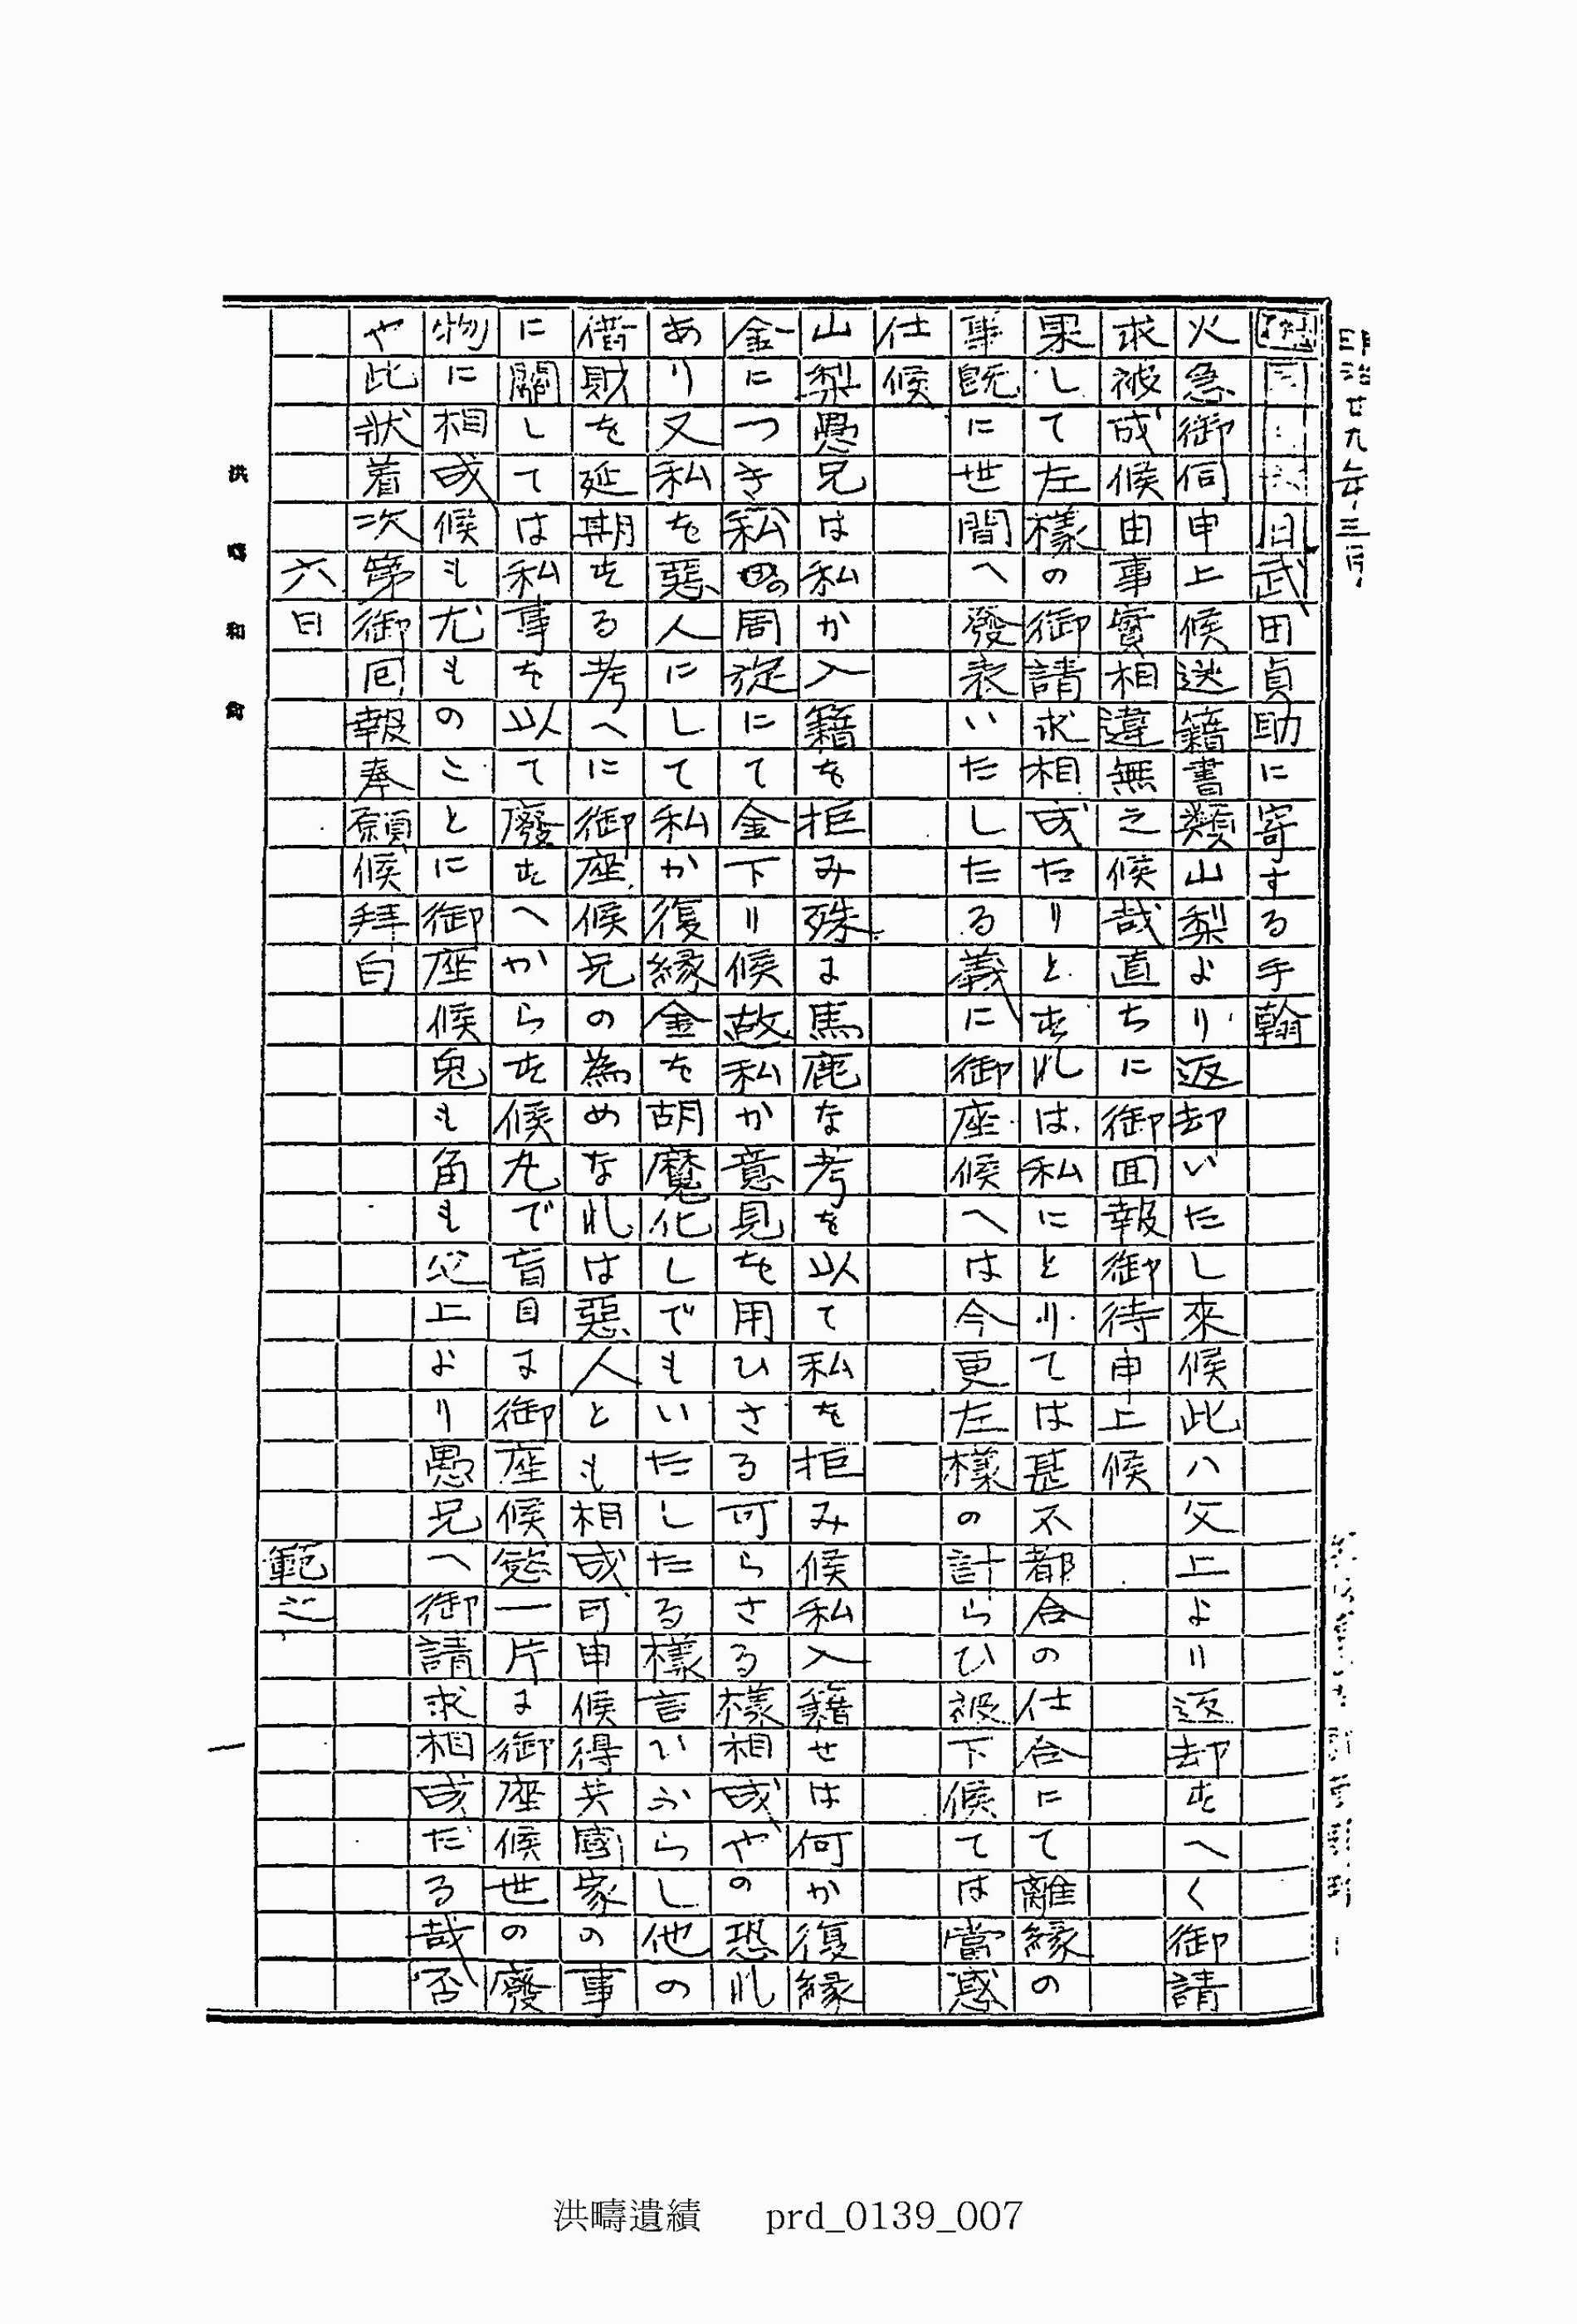 明治廿九年三月
同 六日武田貞助に寄する手翰
火急御伺申上候送籍書類山梨より返却いたし來候此ハ父上より返却せへく御請
求被成候由事實相違無之候哉直ちに御囬報御待申上候
果して左樣の御請求相成たりとせれは私にとりては甚不都合の仕合にて離緣の
事既に世間へ發表いたしたる義に御座候へは今更左樣の計らひ被下候ては當惑
仕候
山梨愚兄は私か入籍を拒み殊に馬鹿な考を以て私を拒み候私入籍せは何か復緣
金につき私の周旋にて金下り候故私か意見を用ひさる可らさる樣相成やの恐れ
あり又私を惡人にして私か復緣金を胡魔化しでもいたしたる樣言ひふらし他の
借財を延期せる考へに御座候兄の為めなれは惡人とも相成可申候得共國家の事
に關しては私事を以て廢せへからせ候丸で盲目に御座候慾一片に御座候世の廢
物に相成候も尤ものことに御座候兎も角も父上より愚兄へ御請求相成たる哉否
や此狀着次第御囘報奉願候拜白
六日
範之
洪疇和尙
一
洪疇遺績 prd_0139_007